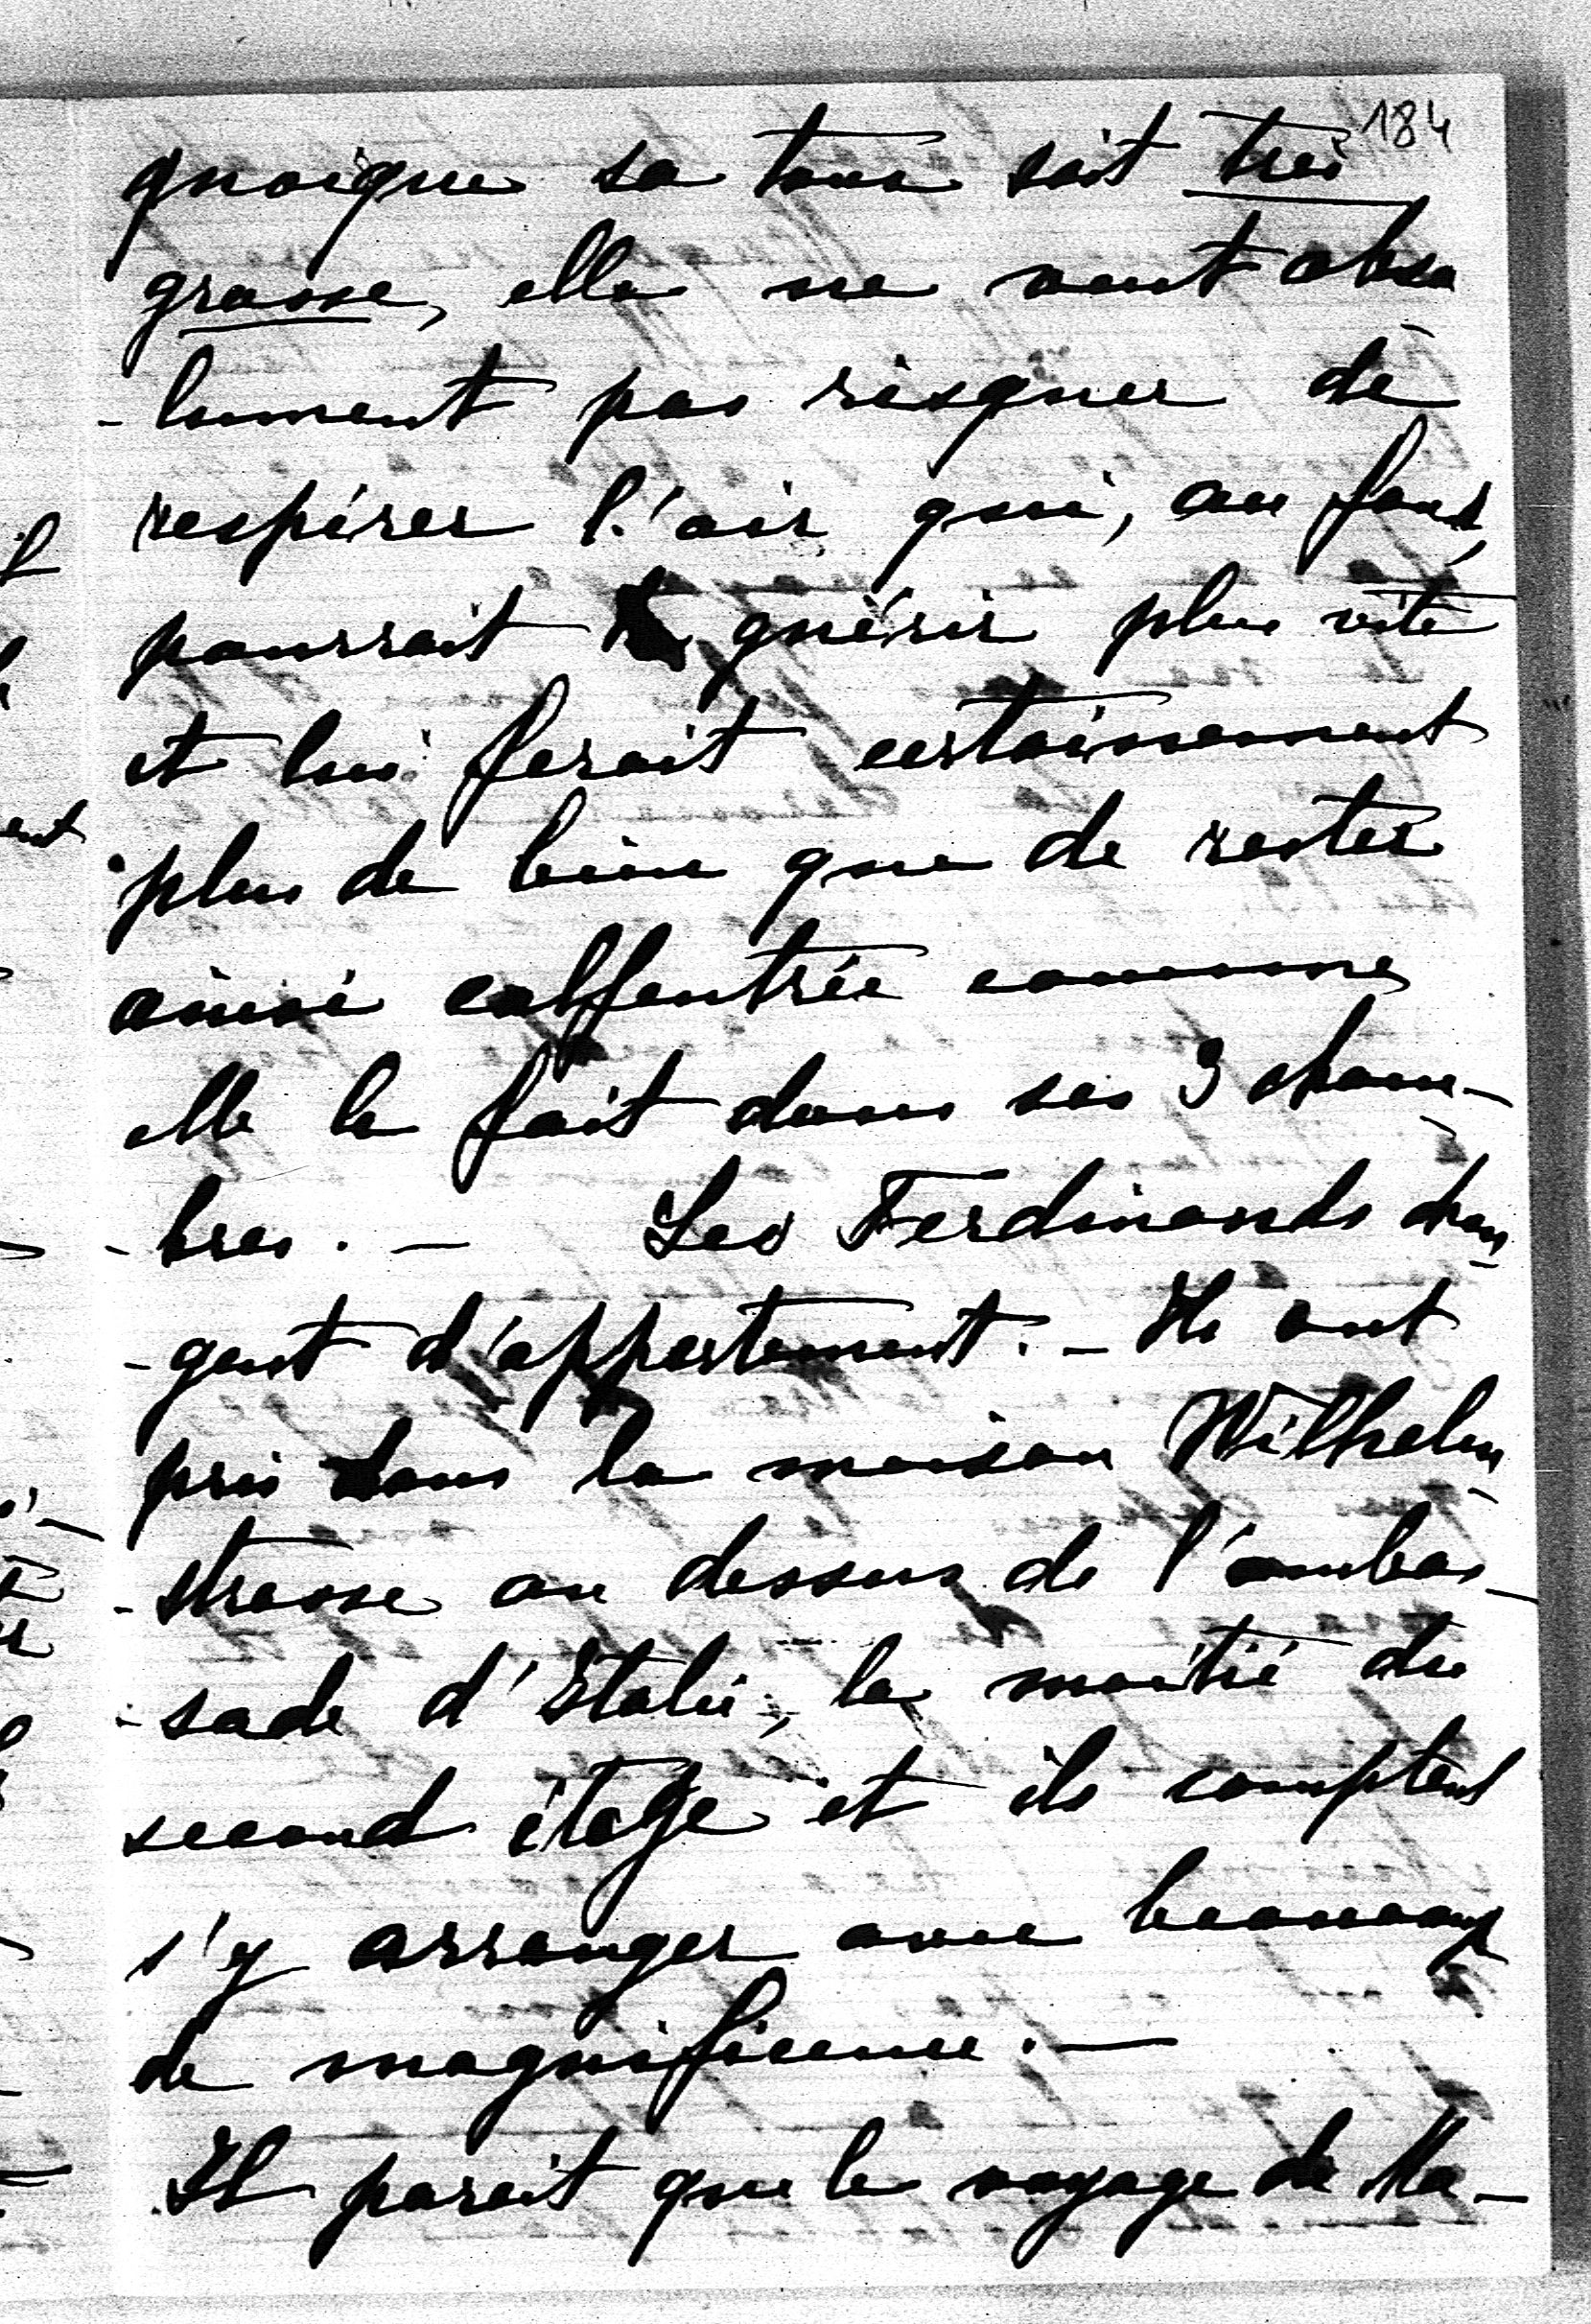 184
quoique sa toux soit très
grasse, elle ne veut abso
-lument pas risquer de
respirer l'air qui, au fond,
pourrait guérir plus vite
et lui ferait certainement
plus de bien que de rester
ainsi calfeutrée comme
elle le fait dans ses 3 cham-
-bres. - Les Ferdinands chan
-gent d'appartement. - Ils ont
pris dans la maison Wilhelm
-strasse au dessus de l'ambas-
-sade d'Italie, la moitié du
second étage et ils comptent
s'y arranger avec beaucoup
de magnificence. -
Il parait que le voyage de Ma-